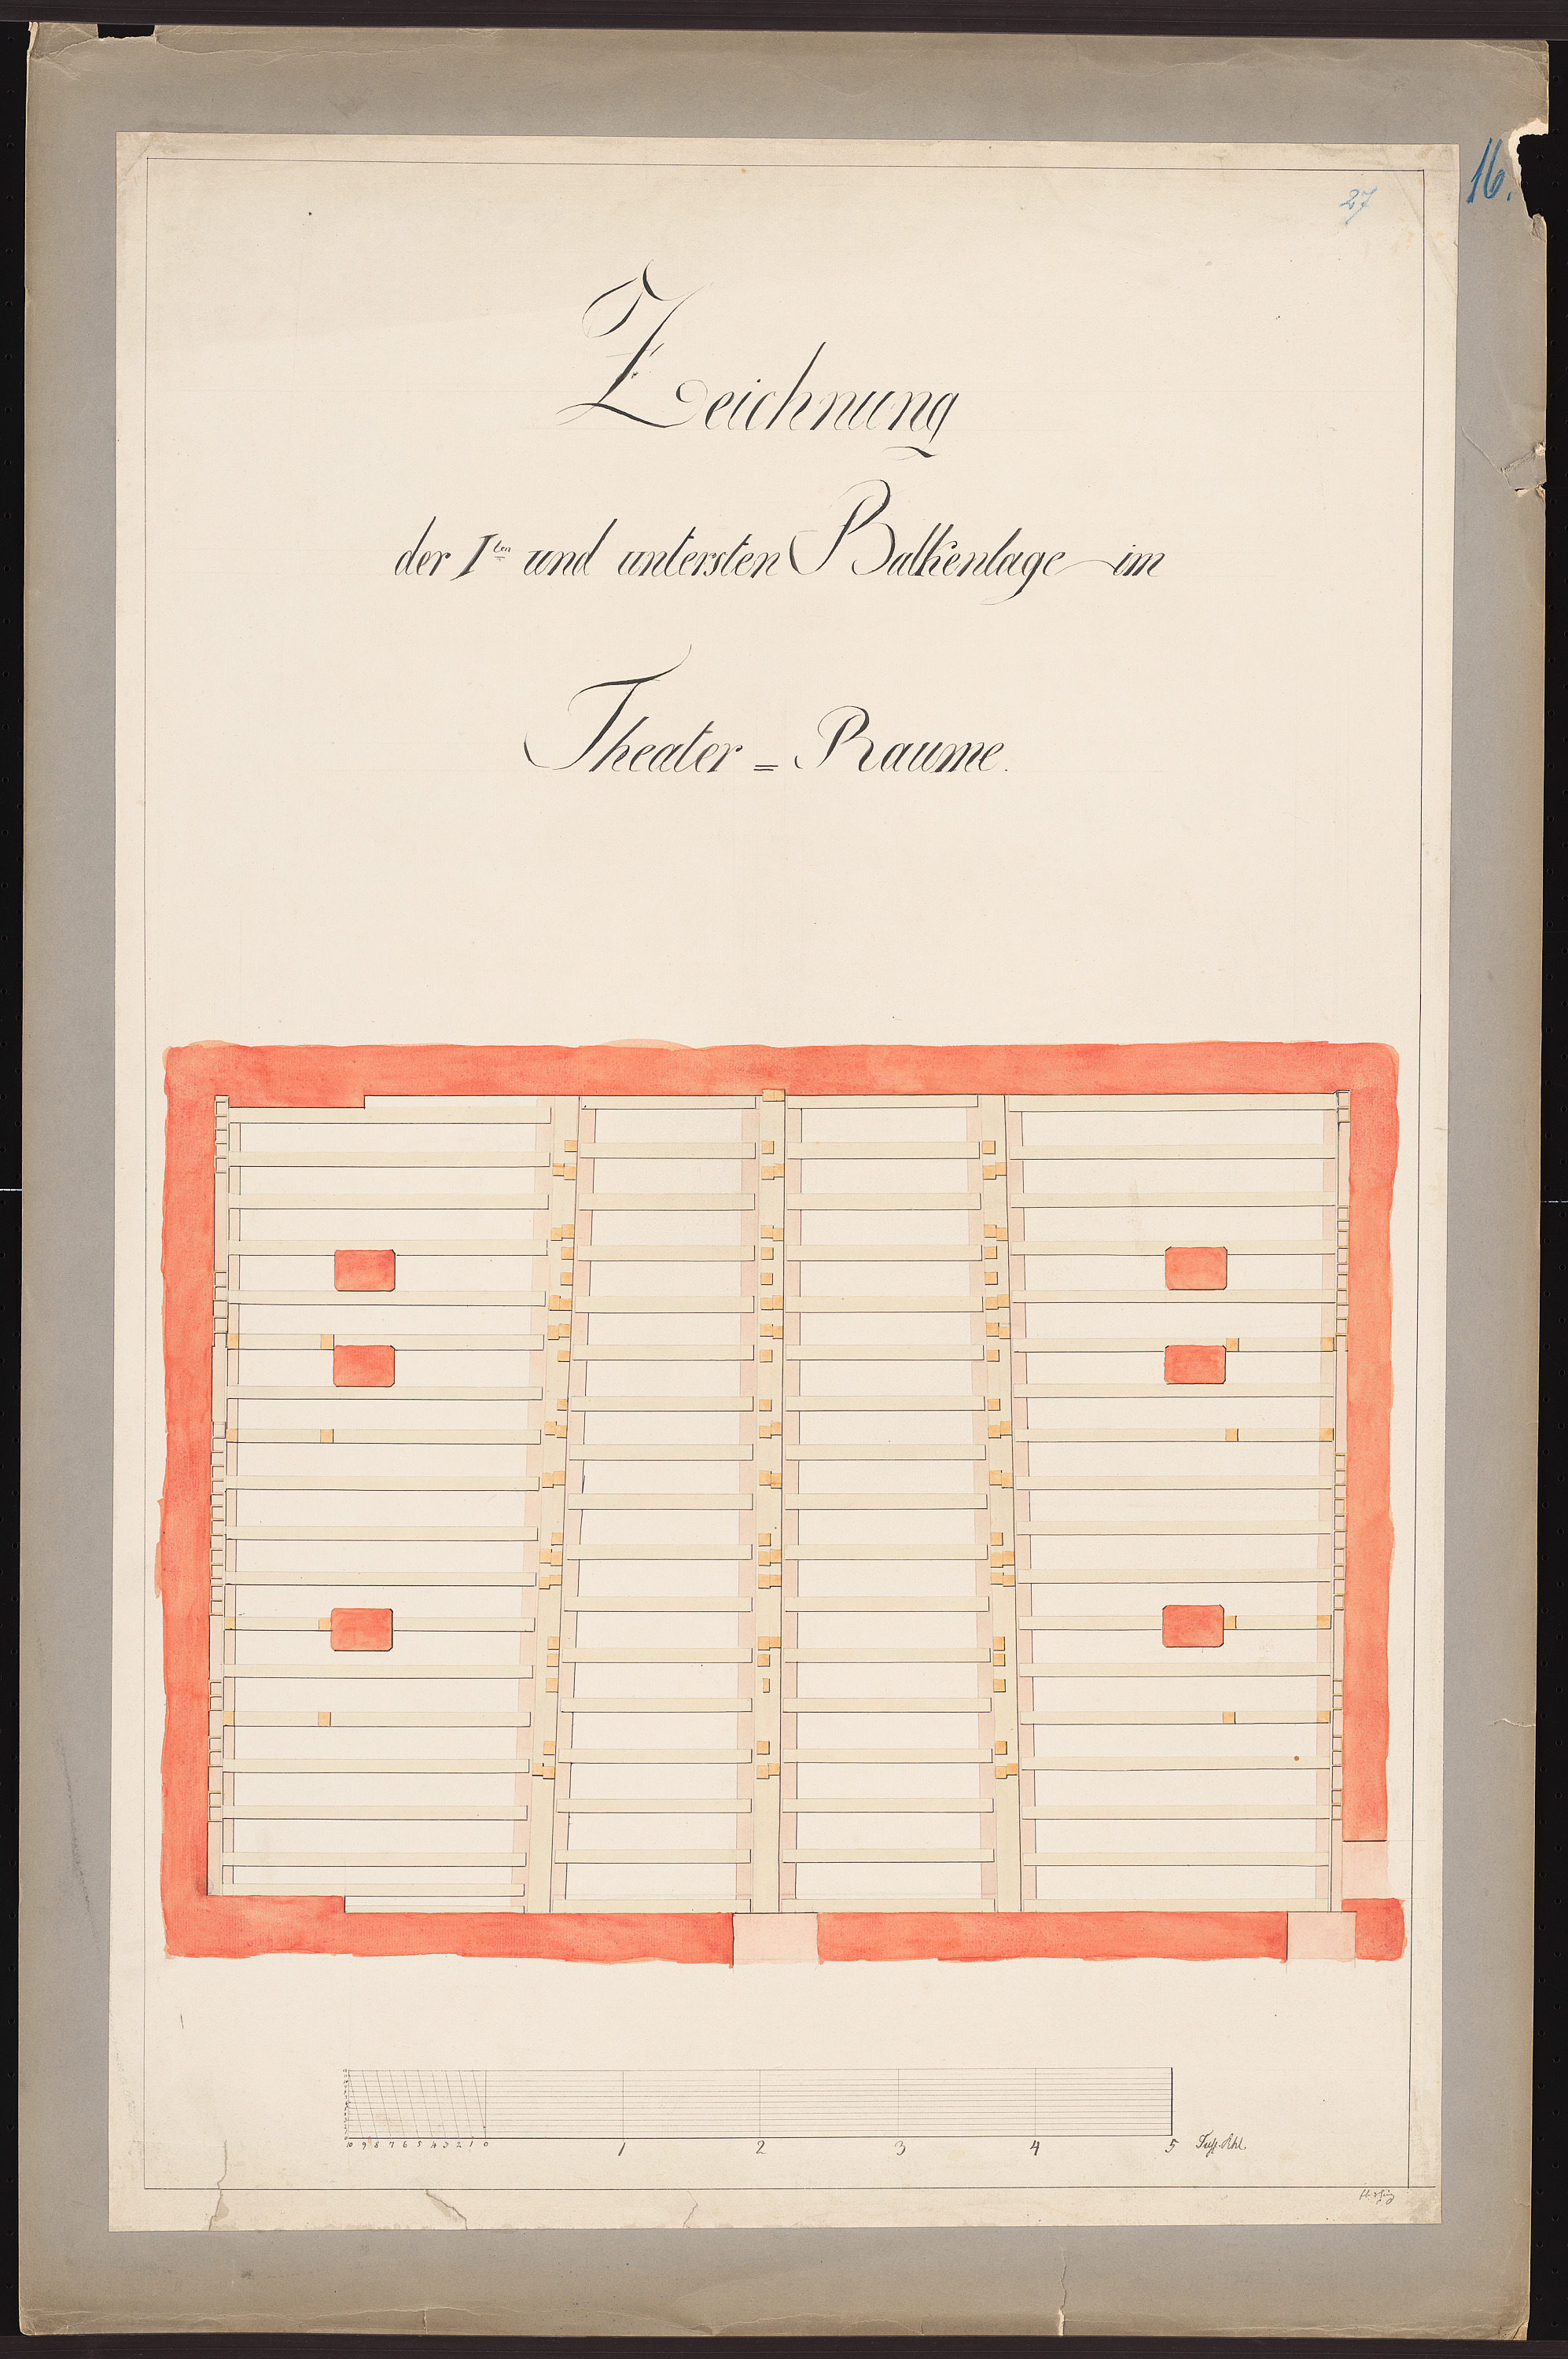 16.
27
Zeichnung
der I ten und untersten Balkenlage im
Theater = Raume.
10 9 8 7 6 5 4 3 2 1 0 1 2 3 4 5